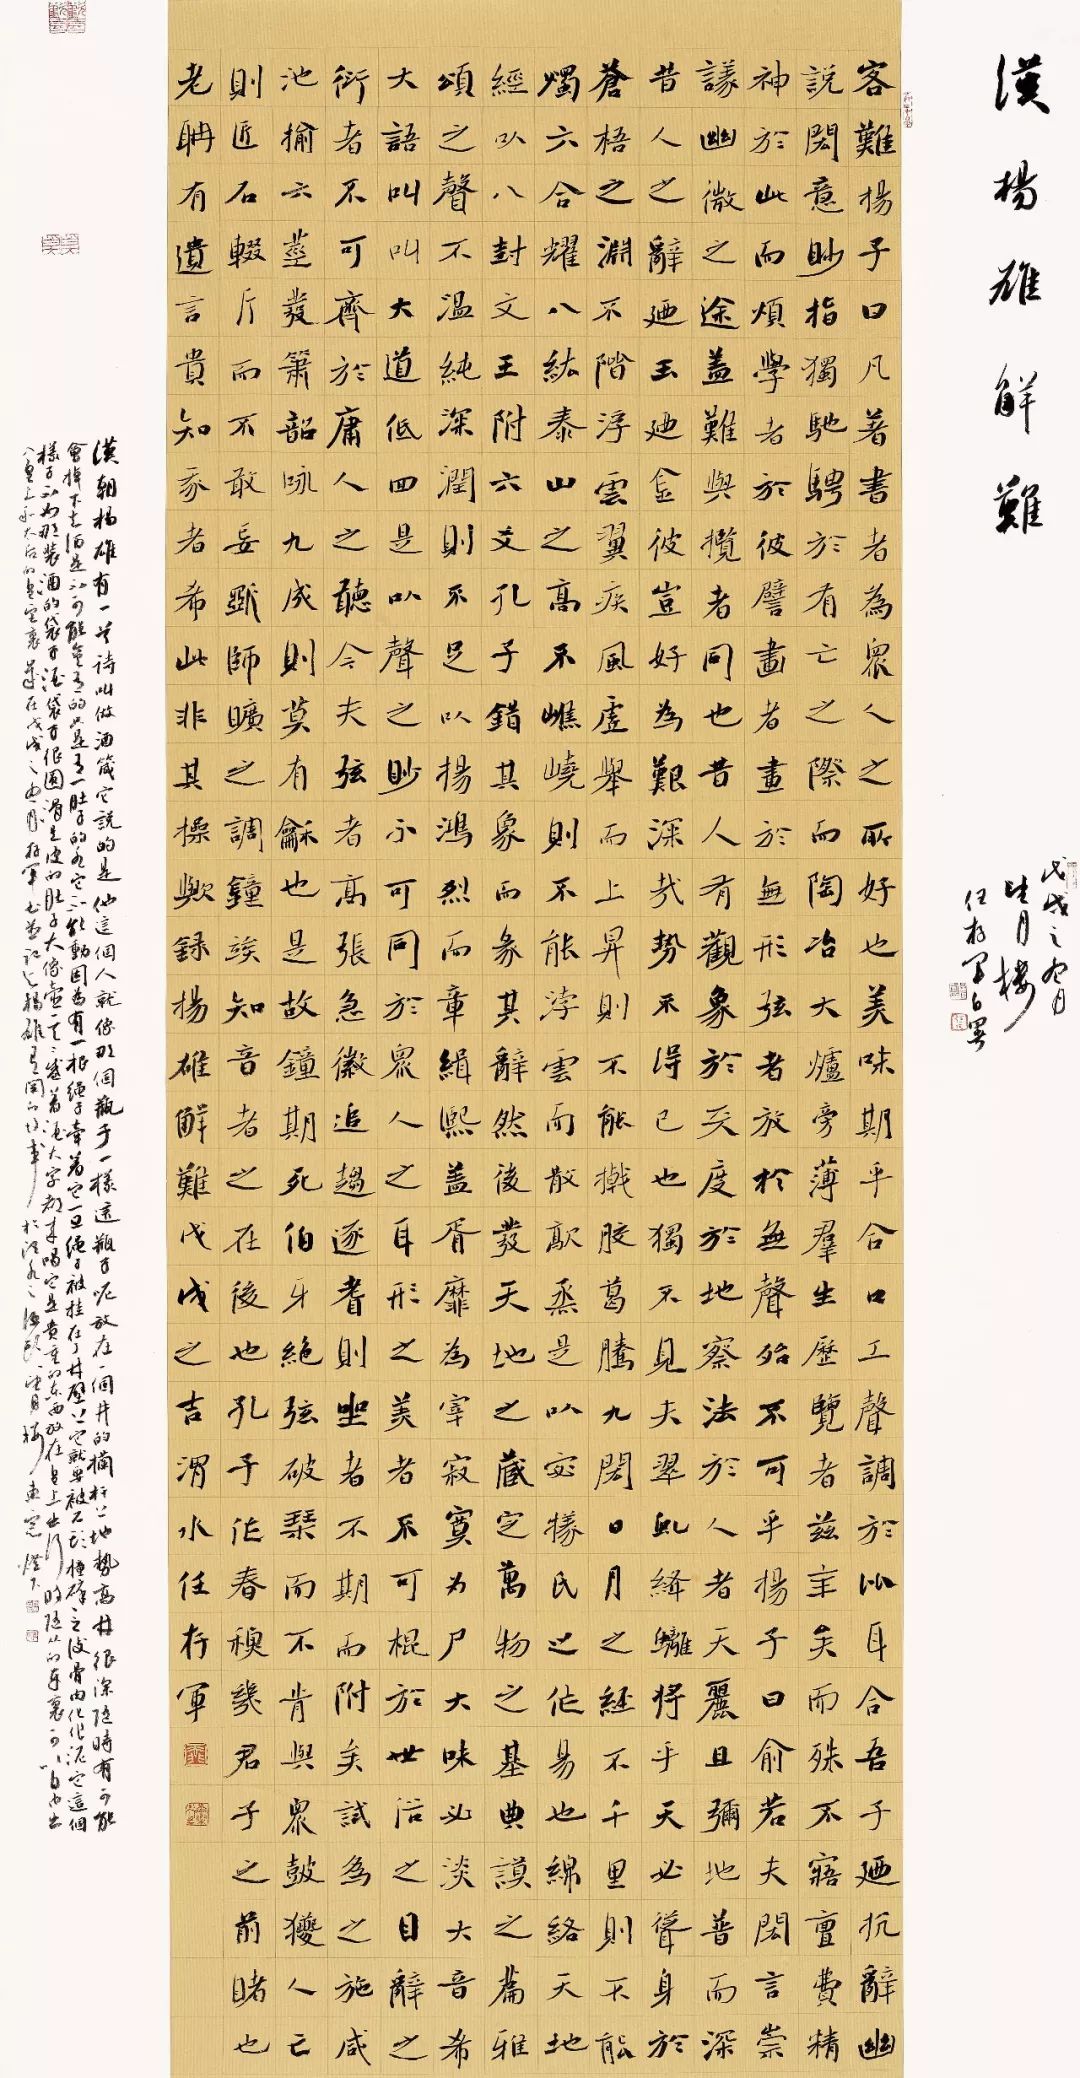 漢楊雄解難
戊戌之
望月樓
任存軍自署
客難楊子曰凡著書者為衆人之所好也美味期乎合口工聲調於比耳合吾子廼抗辭幽
說閎意眇指獨馳騁於有亡之際而陶冶大爐旁薄羣生歷覽者茲年矣而殊不寤亶費精
神於此而煩學者於彼譬畫者畫於無形弦者放於無聲殆不可乎楊子曰俞若夫閎言崇
議幽微之途蓋難與攬者同也昔人有觀象於天度於地察法於人者天麗且彌地普而深
昔人之辭廼玉廼金彼豈好為艱深哉勢不得已也獨不見夫翠虬絳螭將乎天必聳身於
蒼梧之淵不階浮雲翼疾風虛舉而上昇則不能撠膠葛騰九閎日月之經不千里則不能
燭六合耀八紘泰山之高不嶕嶢則不能浡雲而散歊烝是以宓犧氏之作易也綿絡天地
經以八封文王附六爻孔子錯其象而彖其辭然後發天地之藏定萬物之基典謨之篇雅
頌之聲不溫純深潤則不足以揚鴻烈而章緝熙蓋胥靡為宰寂寞为尸大味必淡大音希
大語叫叫大道低回是以聲之眇不可同於衆人之耳形之美者不可棍於世俗之目辭之
衍者不可齊於庸人之聽今夫弦者高張急徽追趨逐耆則坐者不期而附矣試為之施咸
池揄六莖發簫韶咏九成則莫有龢也是故鐘期死伯牙絕弦破琴而不肯與衆鼓獿人亡
則匠石輟斤而不敢妄斲師曠之調鐘竢知音者之在後也孔子作春秋幾君子之前睹也
老聃有遺言貴知我者希此非其操歟録楊雄解難戊戌之吉渭水任存軍
漢朝楊雄有一首诗叫做酒箴它説的是他這個人就像那個瓶子一樣這瓶子呢放在一個井的欄杆上地勢高井很深隨時有可能
會掉下去酒是不可能盛着的只是有一肚子的水它不能動因為有一根繩子牽着它一旦繩子被挂在了井壁上它就要被石頭撞碎之後骨肉化作泥它這個
樣子不如那裝酒的袋子酒袋子很圓滑